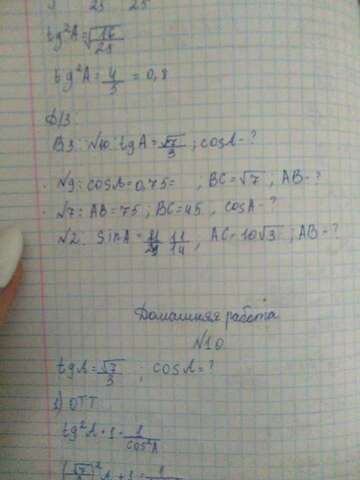 tg²A = √16/25
tg²A = 4/5 = 0,8
Д/З:
В3: №10: tgA = √7/3 ; cosA - ?
№9: cosA = 0,75 = , BC = √7 , AB - ?
№7: AB = 75 ; BC = 45 , cosA - ?
№2: sinA = 11/14 , AC = 10√3 ; AB - ?
Домашняя работа
№10
tgA = √7/3 ; cosA = ?
1) ОТТ
tg²A + 1 = 1/cos²A